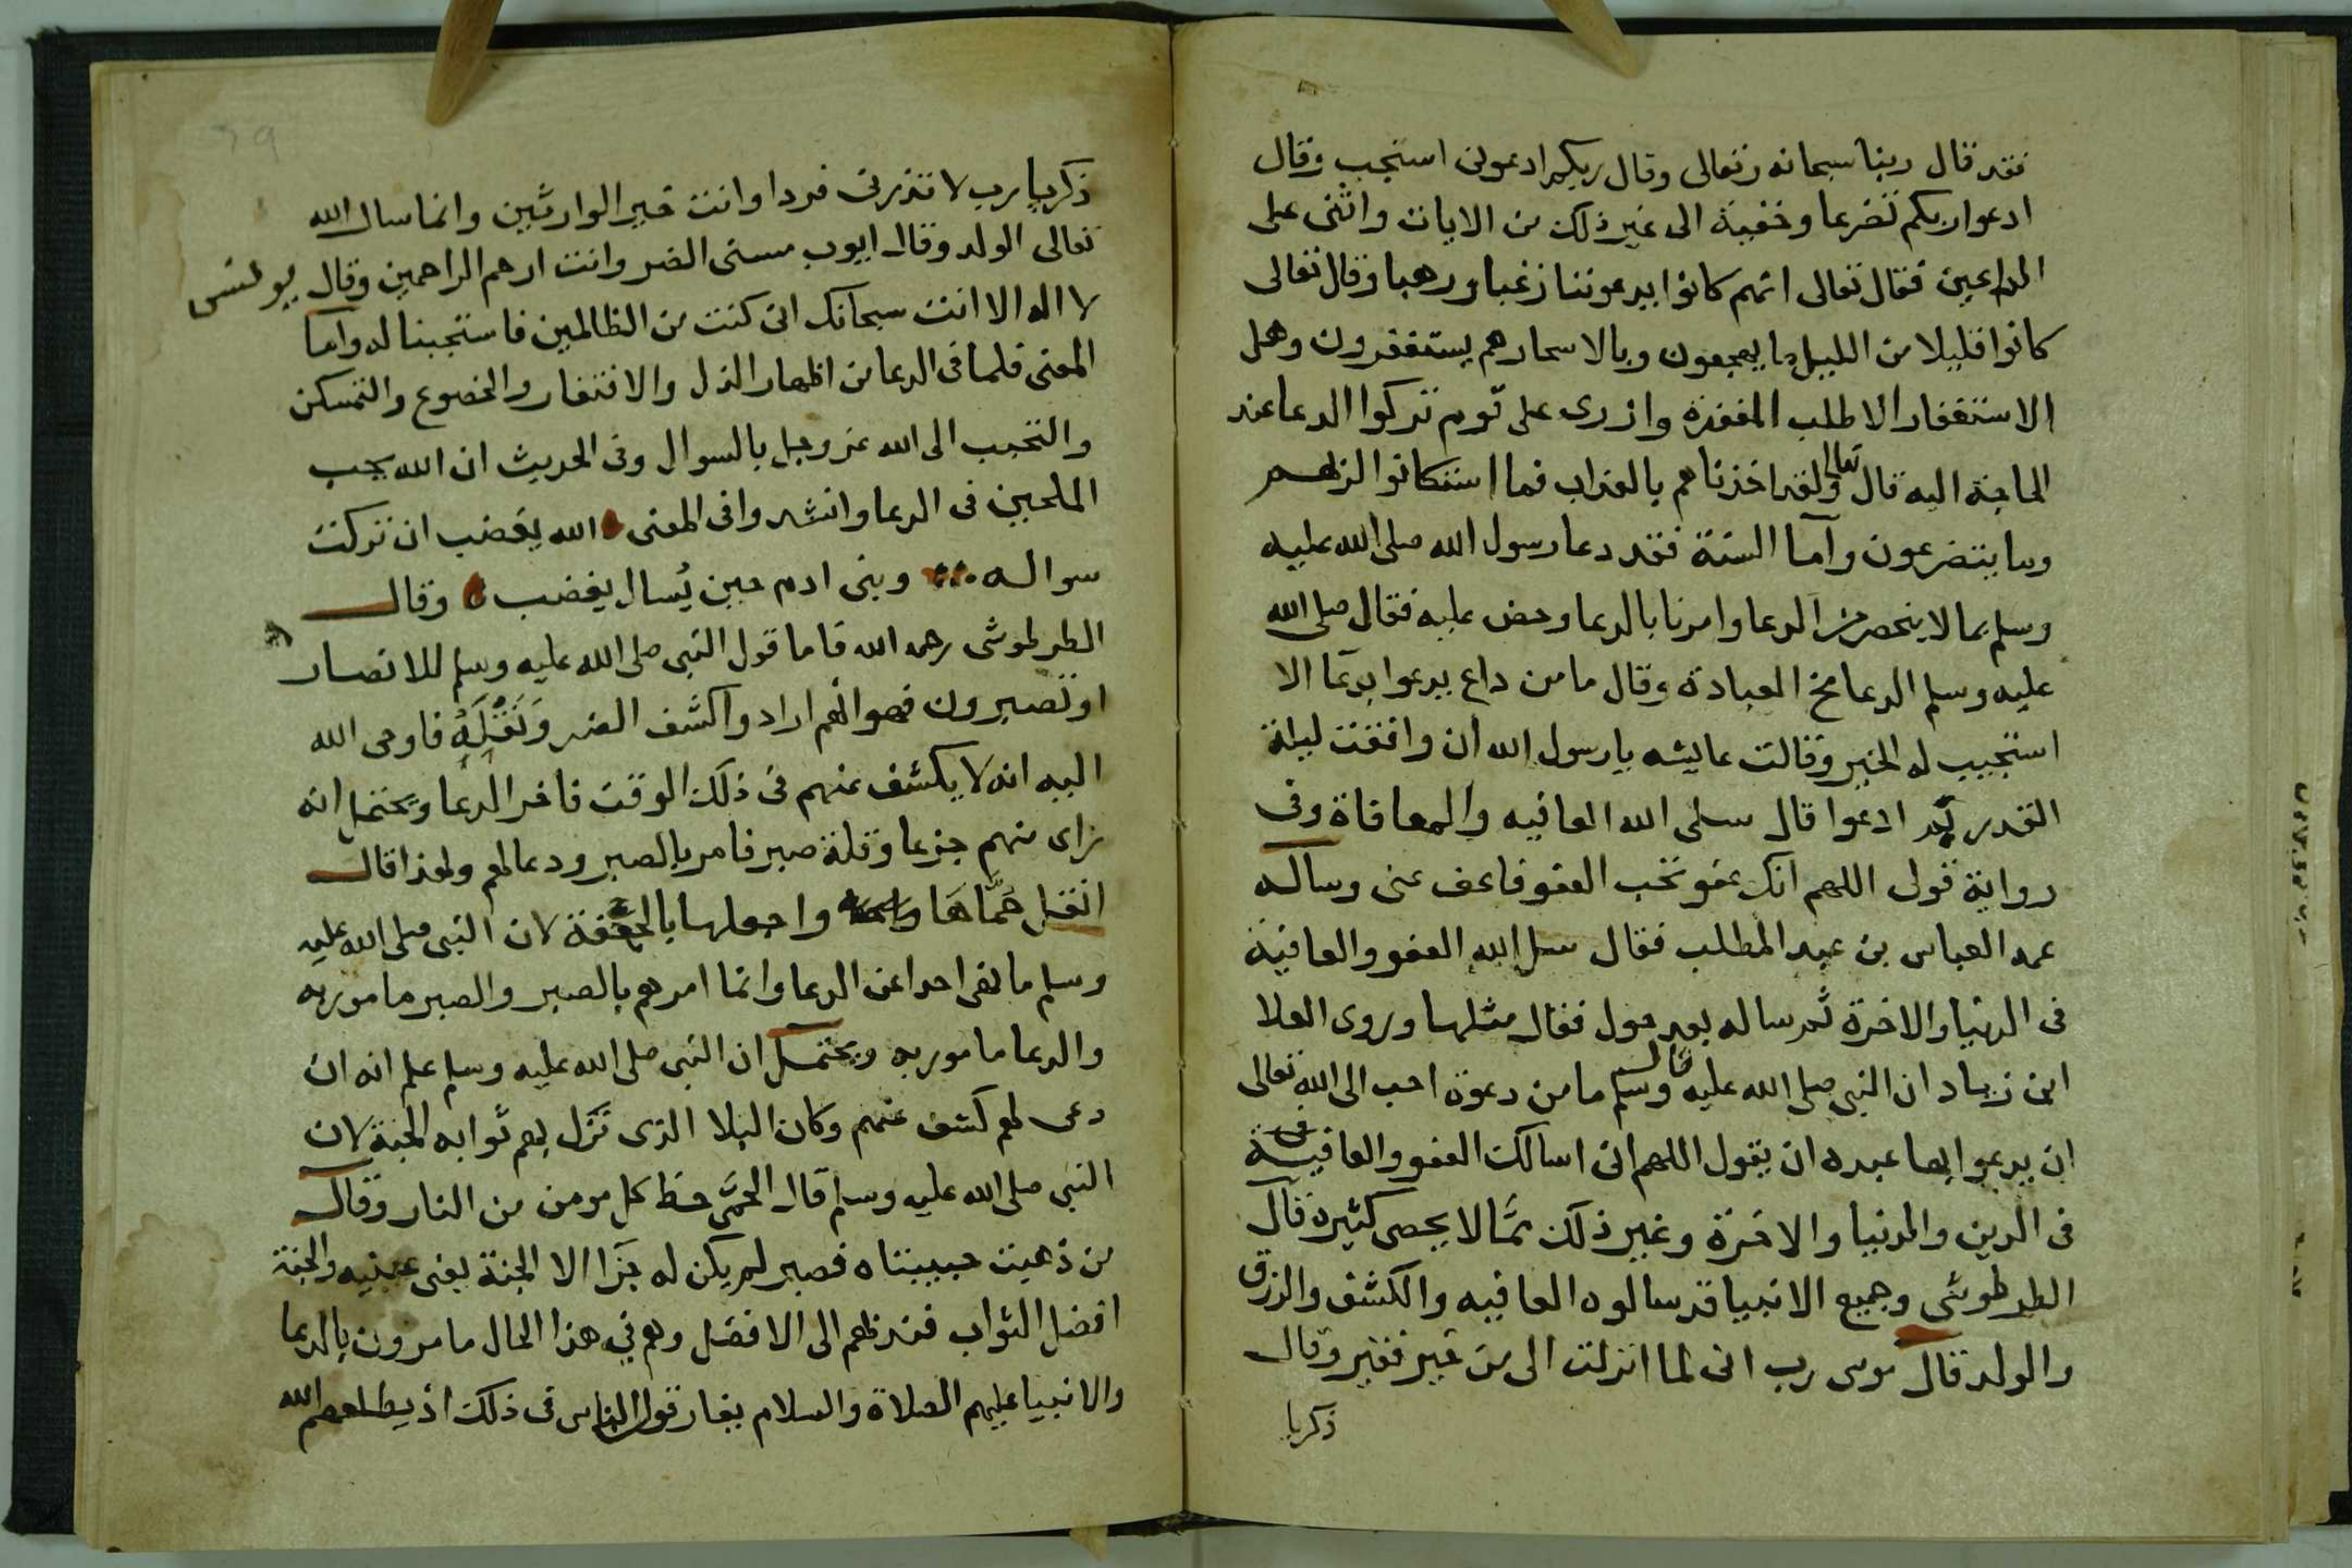 فقد قال ربنا سبحانه وتعالى وقال ربكم ادعونى استجب وقال
ادعوا ربكم تضرعا وخفية الى غير ذلك من الايات واثنى على
الداعين فقال تعالى انهم كانوا يدعوننا رغبا ورهبا وقال تعالى
كانوا قليلا من الليل ما يهجعون وبالاسحار هم يستغفرون وهل
الاستغفار الا طلب المغفرة وازرى على قوم تركوا الدعا عند
الحاجة اليه قال تعالى ولقد اخذناهم بالعذاب فما استكانوا لربهم
وما يتضرعون وآما السنة فقد دعا رسول الله صلى الله عليه
وسلم بما لا ينحصر من الدعا وامرنا بالدعا وحض عليه فقال صلى الله
عليه وسلم الدعا مخ العبادة وقال ما من داع يدعوا بدعا الا
استجيب له الخير وقالت عايشه يا رسول الله ان وافقت ليلة
القدر ادعوا قال سلى الله العافيه والمعافاة وفى
رواية قولى اللهم انك عفو تحب العفو فاعف عنى وساله
عمه العباس بن عبد المطلب فقال سل الله العفو والعافية
فى الدنيا والاخرة ثم ساله بعد حول فقال مثلها وروى العلا
ابن زياد ان النبى صلى الله عليه وسلم قال ما من دعوة احب الى الله تعالى
ان يدعوا بها عبده ان يقول اللهم انى اسالك العفو والعافية
فى الدين والدنيا والاخرة وغير ذلك مما لا يحصى كثيرة قال
الطرطوشى وجميع الانبيا قد سالوه العافيه والكشف والرزق
والولد قال موسى رب انى لما انزلت الى من خير فقير وقال
زكريا
زكريا رب لا تذرنى فردا وانت خير الوارثين وانما سال الله
تعالى الولد وقال ايوب مسنى الضر وانت ارحم الراحمين وقال يونس
لا اله الا انت سبحانك انى كنت من الظالمين فاستجبنا له وآما
المعنى فلما فى الدعا من اظهار الذل والافتقار والخضوع والتمسكن
والتحبب الى الله عز وجل بالسوال وفى الحديث ان الله يحب
الملحين فى الدعا وانشدوا فى المعنى الله يغضب ان تركت
سواله وبنى ادم حين يُسال يغضب وقال
الطرطوشى رحمه الله فاما قول النبى صلى الله عليه وسلم للانصار
او تصبرون فهو انهم ارادوا كشف الضر ونقله فاوحى الله
اليه انه لا يكشف عنهم فى ذلك الوقت فاخر الدعا ويحتمل انه
راى منهم جزعا وقلة صبر فامر بالصبر ودعا لهم ولهذا قال
انقل حُمَّاها واجعلها بالجحفة لان النبى صلى الله عليه
وسلم ما نهى احدا عن الدعا وانما امرهم بالصبر والصبر مامور به
والدعا مامور به ويحتمل ان النبى صلى الله عليه وسلم علم انه ان
دعى لهم كشف عنهم وكان البلا الذى نزل بهم ثوابه الجنة لان
النبى صلى الله عليه وسلم قال الحمَّى حظ كل مومن من النار وقال
من ذهبت حبيبتاه فصبر لم يكن له جزا الا الجنة يعنى عينيه والجنة
افضل الثواب فندبهم الى الافضل وهم فى هذا الحال مامرون بالدعا
والانبيا عليهم الصلاة والسلام يفارقوا الناس فى ذلك اذ يطلعهم الله